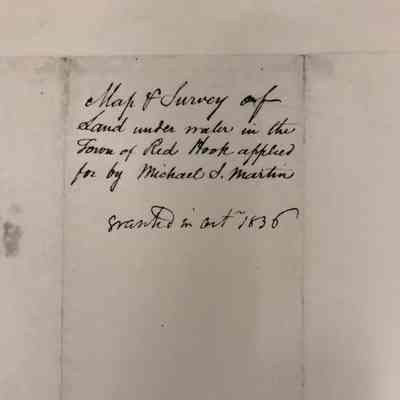 Map & Survey of
Land under water in the
Town of Red Hook applied
for by Michael S. Martin
granted in octr 1836